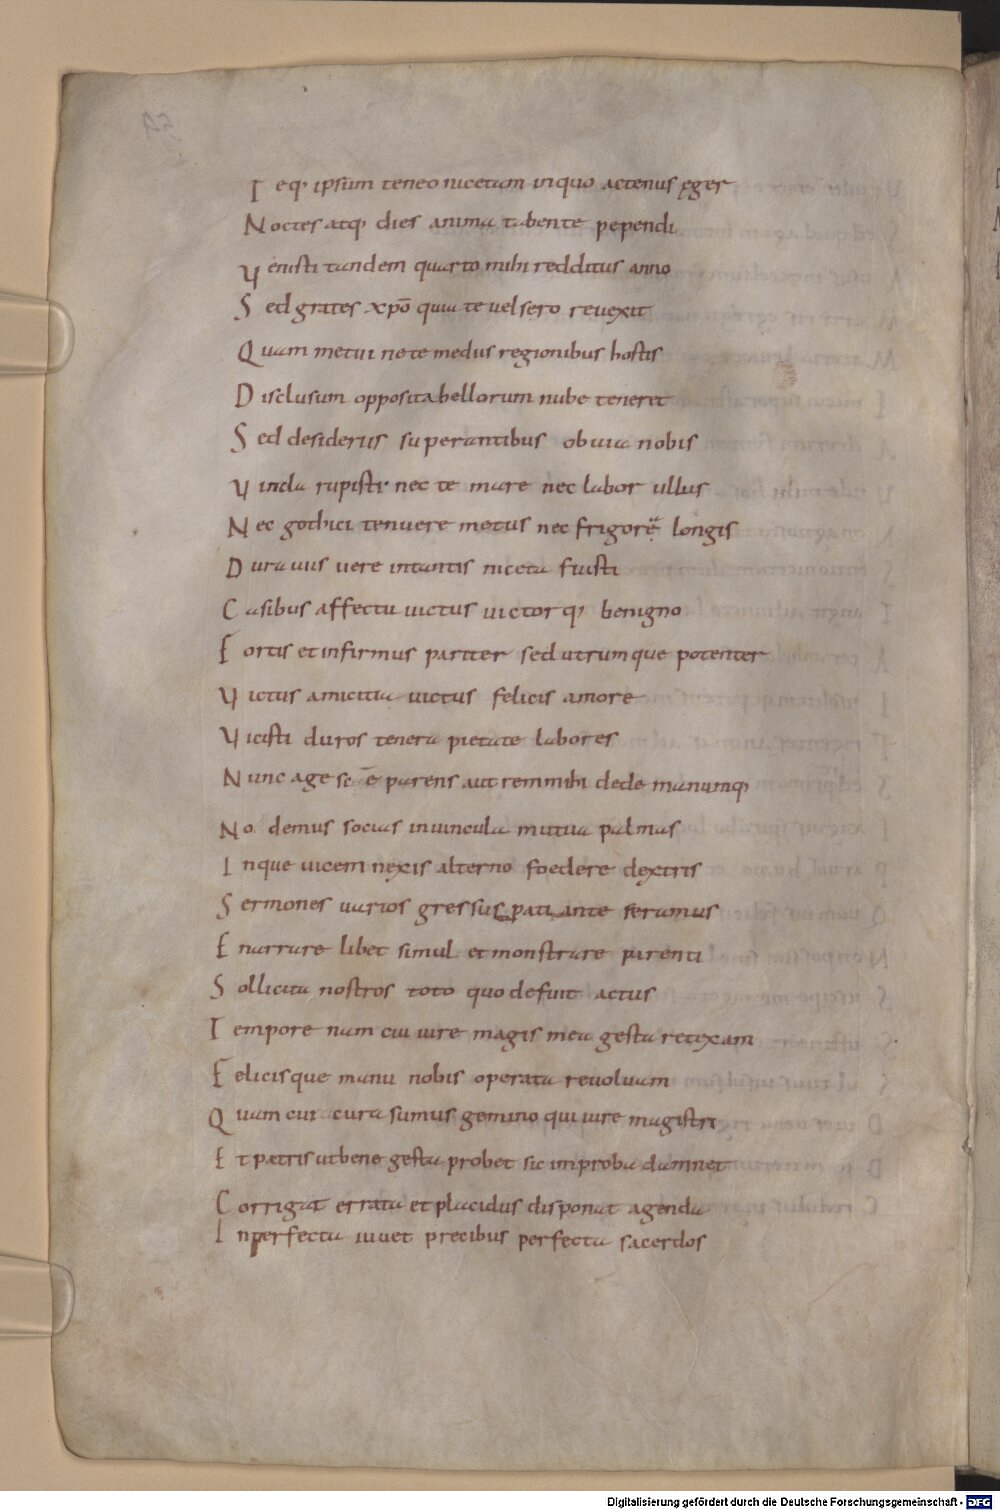 T eq; ipsum teneo nicetam inquo actenus ęger
N octes atq; dies anima tabente pependi
V enisti tandem quarto mihi redditus anno
S ed grates xpō quia te uel sero reuexit
Q uam metui ne te medus regionibus hostis
D isclusum opposita bellorum nube teneret
S ed desideriis superantibus obuia nobis
V incla rupisti nec te mare nec labor ullus
N ec gothici tenuere metus nec frigorę longis
D ura uiis uere intantis niceta fuisti
C asibus affectu uictus uictorq; benigno
F ortis et infirmus pariter sed utrumque potenter
V ictus amicitia uictus felicis amore
V icisti duros tenera pietate labores
N unc age sc ē parens autremmihi dede manumq;
N o demus socias in uincula mutua palmas
I nque uicem nexis alterno foedere dextris
S ermones uarios gressus pati ante feramus
E narrare libet simul et monstrare parenti
S ollicita nostros toto quo defuit actus
T empore nam cui iure magis mea gesta retexam
F elicisque manu nobis operata reuoluam
Q uam cui cura sumus gemino qui iure magistri
E t patris ut bene gesta probet sic improba damnet
C orrigat errata et placidus disponat agenda
I nperfecta iuuet precibus perfecta sacerdos
Digitalisierung gefördert durch die Deutsche Forschungsgemeinschaft - DFG